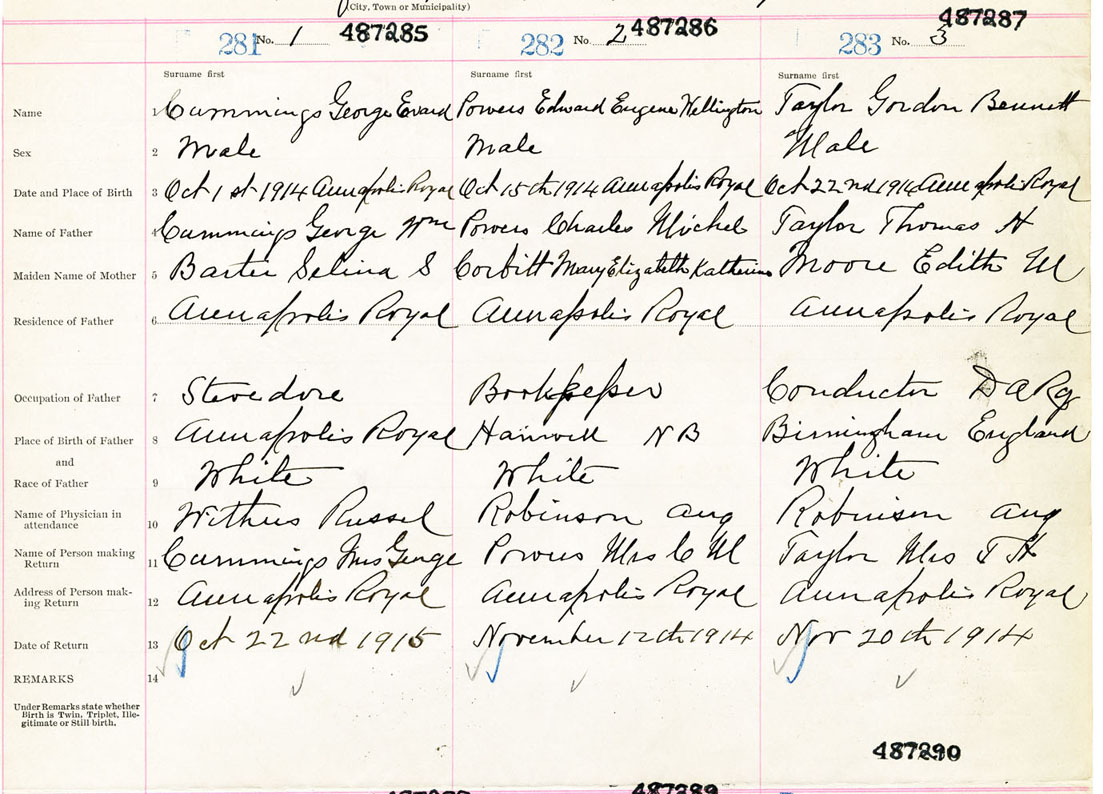 (City, Town or Municipality)
281 No. 1 487285 282 No. 2 487286 283 No. 3 487287
Surname first Surname first Surname first
Name 1 Cummings George Evard Powers Edward Eugene Wellington Taylor Gordon Bennett
Sex 2 Male Male Male
Date and Place of Birth 3 Oct 1st 1914 Annapolis Royal Oct 15th 1914 Annapolis Royal Oct 22nd 1914 Annapolis Royal
Name of Father 4 Cummings George Wm Powers Charles Michel Taylor Thomas H
Maiden Name of Mother 5 Barter Selina S Corbitt Mary Elizabeth Katherine Moore Edith M
Residence of Father 6 Annapolis Royal Annapolis Royal Annapolis Royal
Occupation of Father 7 Stevedore Bookkeeper Conductor D A Ry
Place of Birth of Father 8 Annapolis Royal Hanwell N B Birmingham England
and
Race of Father 9 White White White
Name of Physician in
attendance 10 Withers Russel Robinson Aug Robinson Aug
Name of Person making
Return 11 Cummings Mrs George Powers Mrs C M Taylor Mrs T H
Address of Person mak-
ing Return 12 Annapolis Royal Annapolis Royal Annapolis Royal
Date of Return 13 Oct 22nd 1915 November 12th 1914 Nov 20th 1914
REMARKS 14
Under Remarks state whether
Birth is Twin, Triplet, Ille-
gitimate or Still birth.
487290
487289